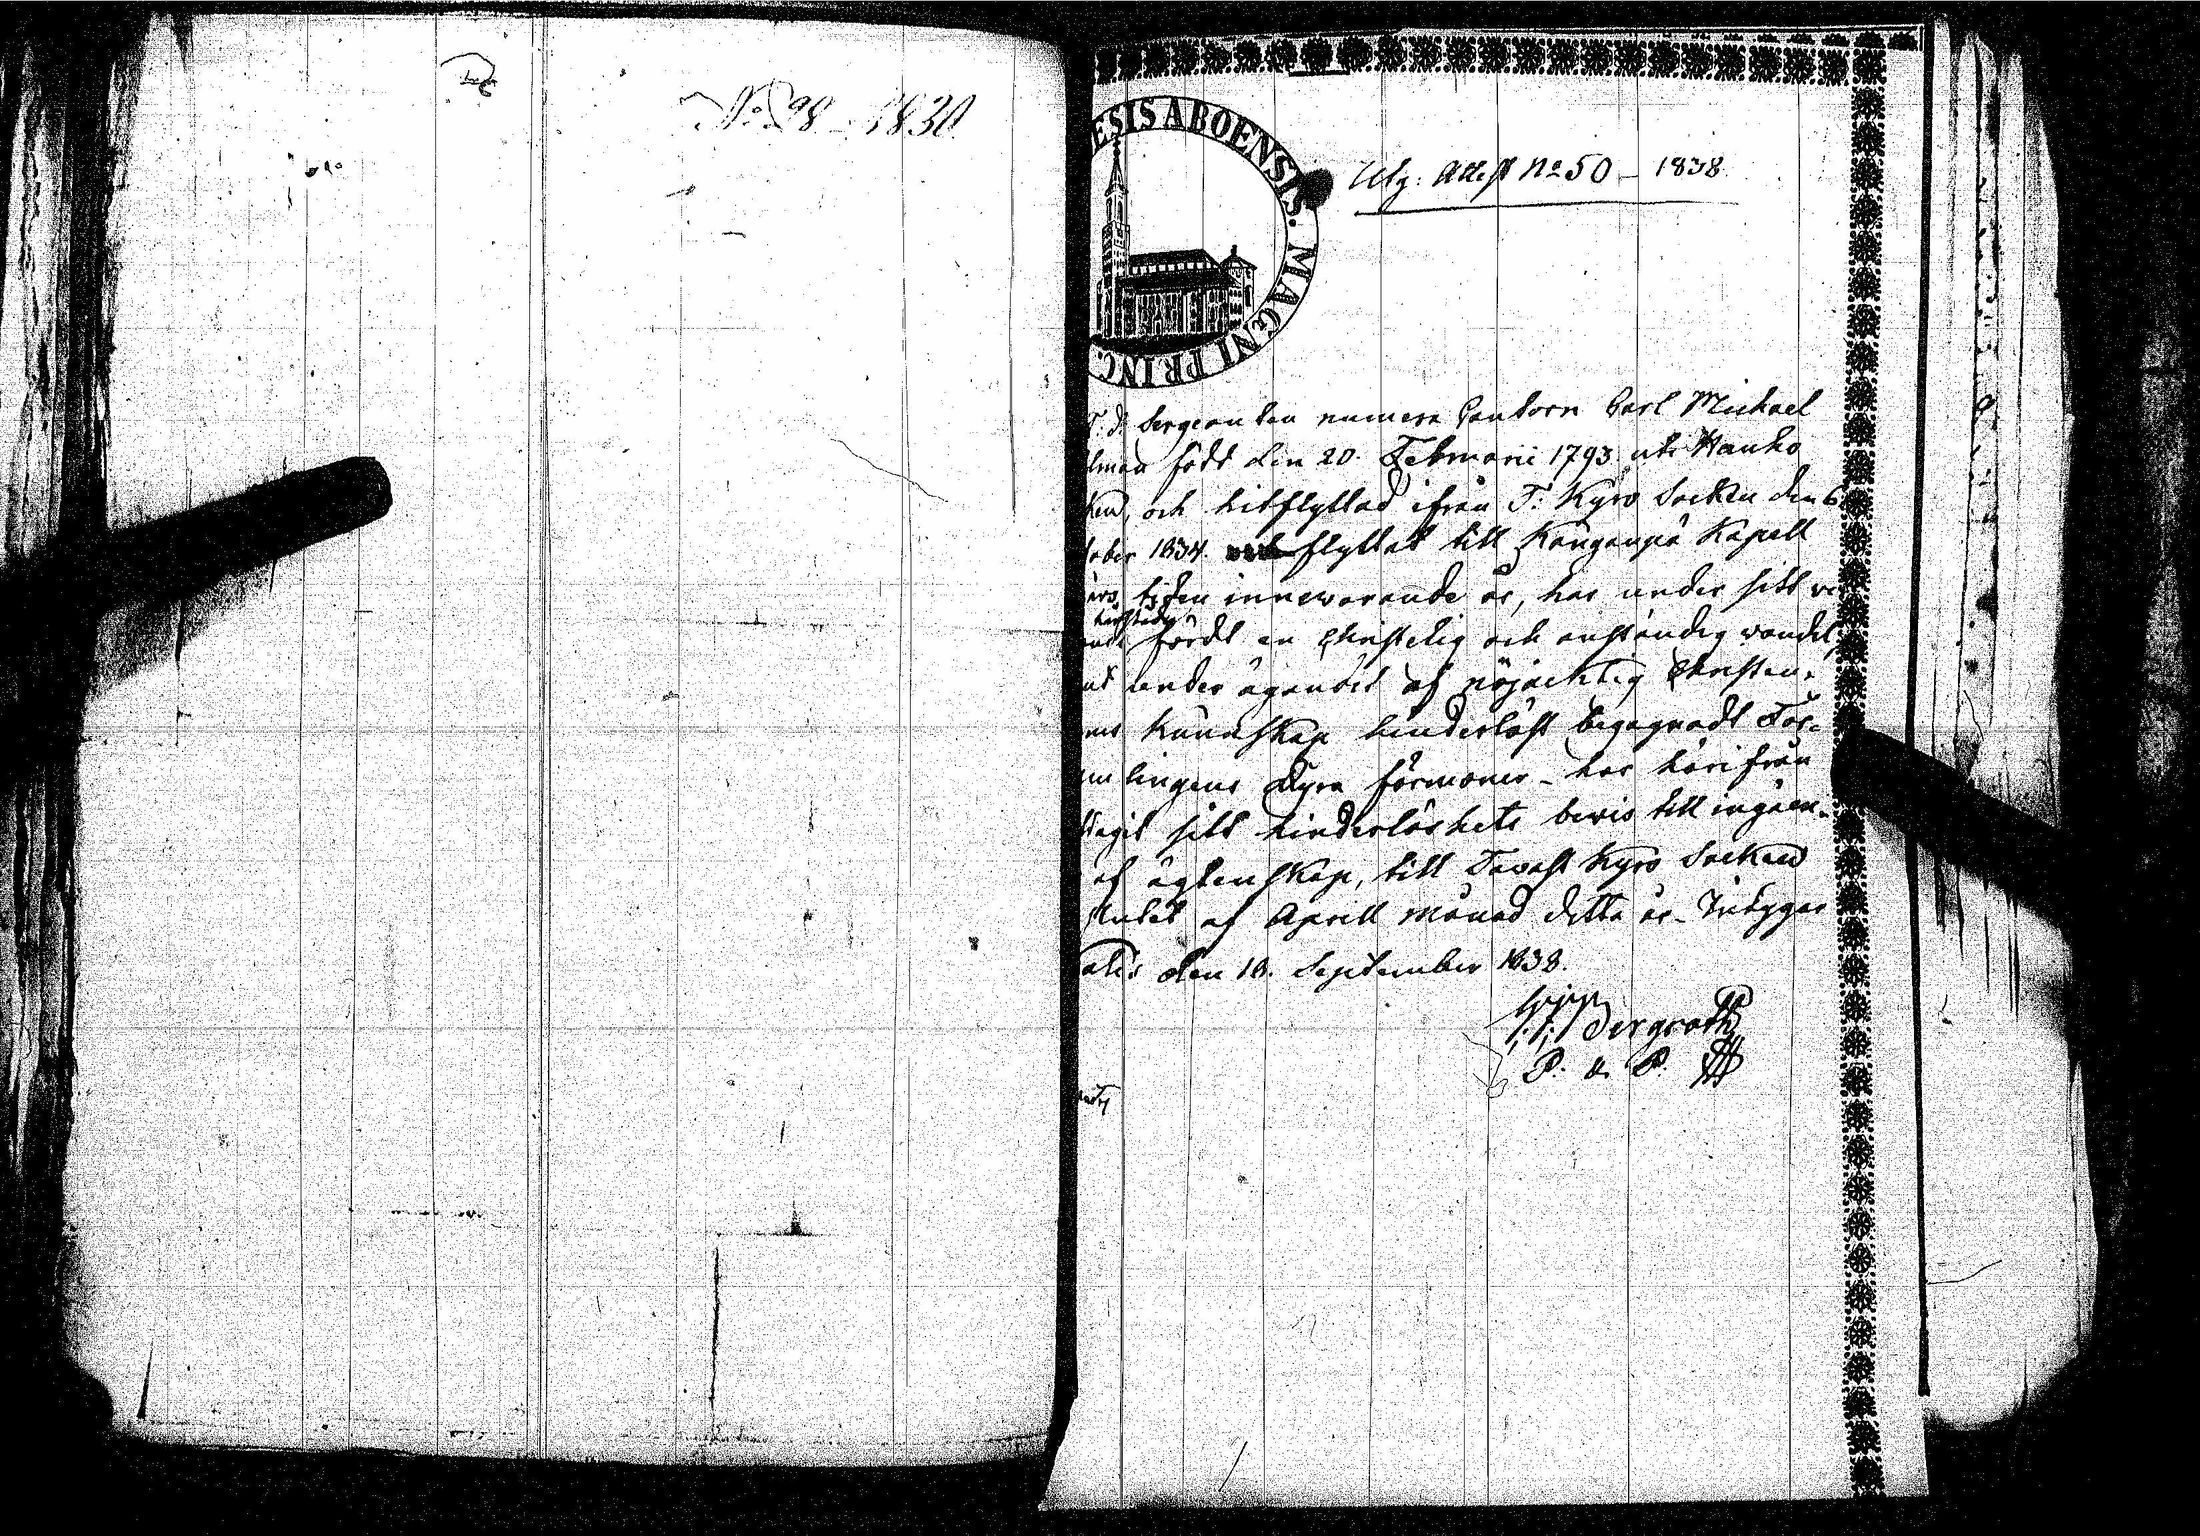 No 98 - 1830
ESIS ABOENSIS. MAGNI PRINC.
Utg: Attest No 50 - 1838
F. d. Sergeanten numera Cantorn Carl Michael
lman född den 20. Februarii 1793 uti Kauho
ken, och hitflyttad ifrån T: Kyro Socken den 6
tober 1834. flyttat till Kangaspä Kapell
års tiden innewarande år, har under sitt we
härstädes
ande fördt en Christelig och anständig wandel,
at under ägandet af nöjachtig Christen,
ms Kunskap hinderlöst begagnadt För=
mlingens Dyra förmoner - har härifrån
ttagit sitt hinderlöshets bewis till ingåen,
af ägtenskap, till Tavast Kyro Socken
slutet af Aprill månad detta år - Intygar
atis den 18. September 1838.
Bergroth
P. a. P.